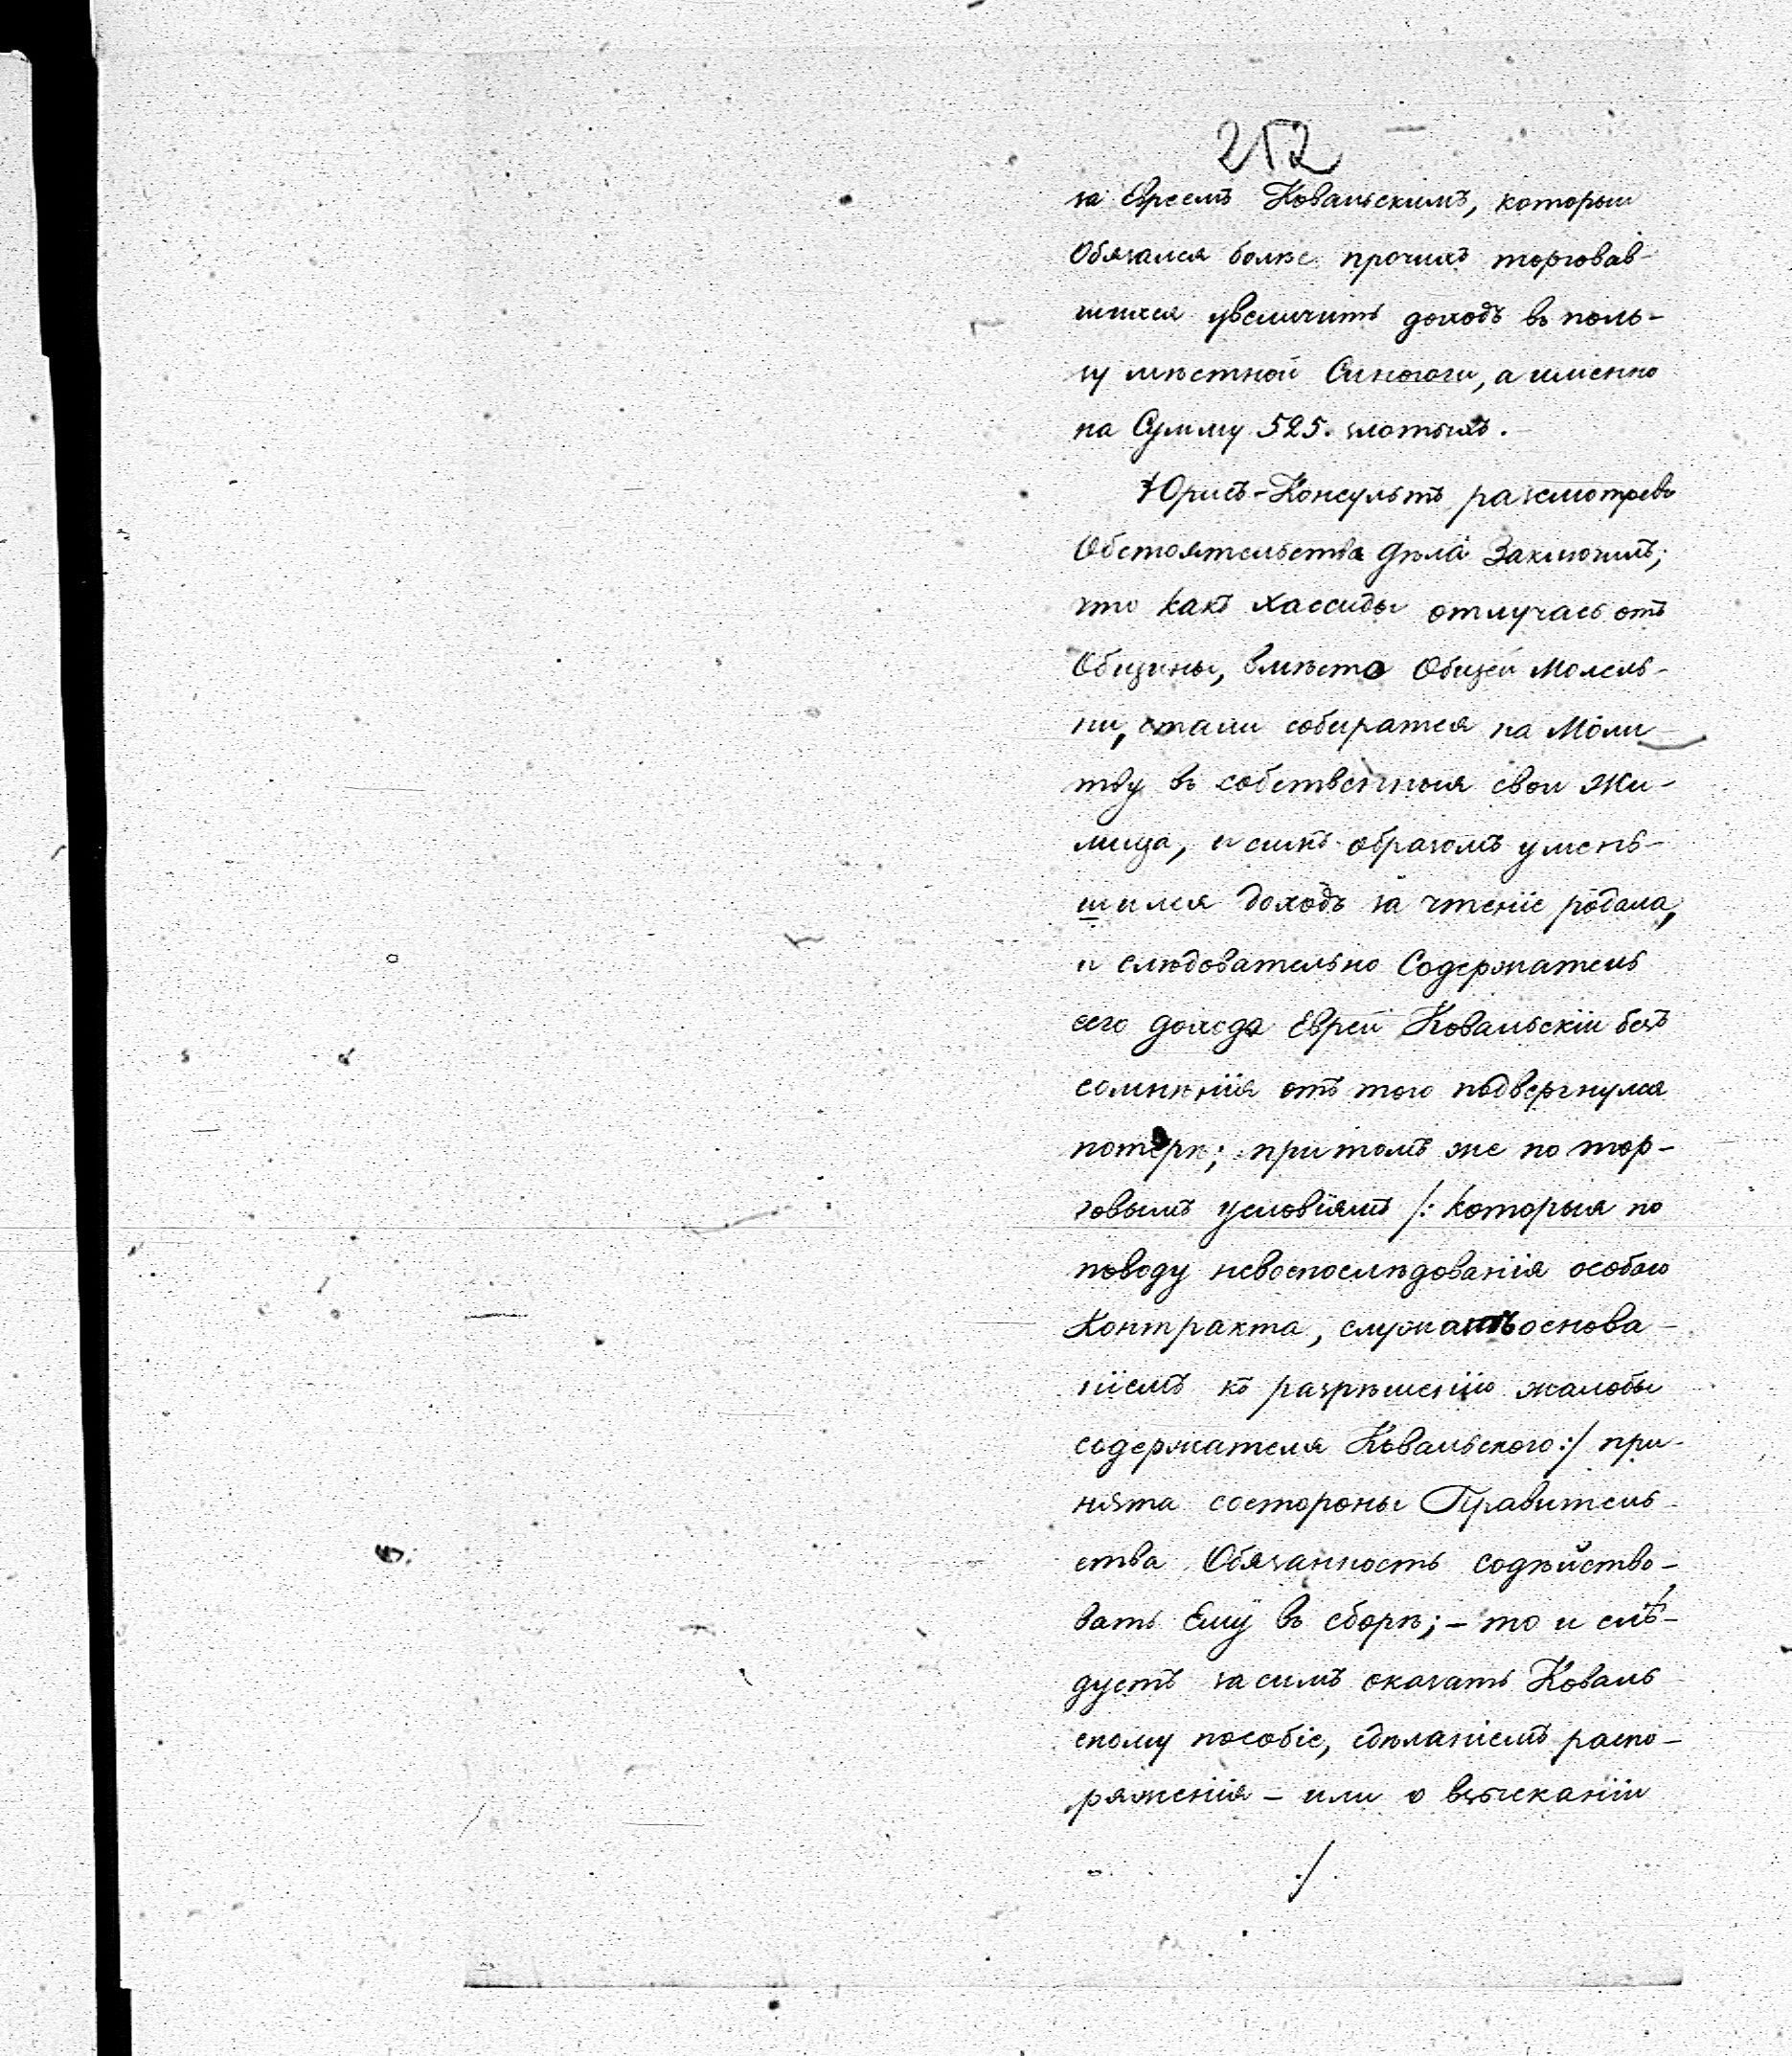 252
за Евреемъ Ковальскимъ, который
Обязался болѣе прочихъ торговав-
шихся увеличить доходъ въ поль-
зу мѣстной Синогоги, а именно
на Сумму 525. злотыхъ.
Юрисъ-Консультъ разсмотрев
Обстоятельства дѣла Заключилъ,
что какъ хассиды отлучась отъ
Общины, вмѣсто Общей Молель-
ни, стали собиратся на Моли-
тву въ собственныя свои жи-
лища, и симъ образомъ умень-
шился доходъ за чтеніе родала,
и слѣдовательно Содержатель
сего дохода Еврей Ковальскій безъ
сомнѣнія отъ того подвергнулся
потерѣ; притомъ же по тор-
говымъ условіямъ /: которыя по
поводу невоспослѣдованія особаго
Контракта, служатъ основа-
ніемъ къ разрѣшенію жалобы
содержателя Ковальского :/ при-
нята состороны Правитель-
ства Обязанность содѣйство-
вать Ему въ сборѣ; - то и слѣ-
дуетъ засимъ оказать Коваль
скому пособіе, сдѣланіемъ распо-
ряженія - или о взысканіи
./.